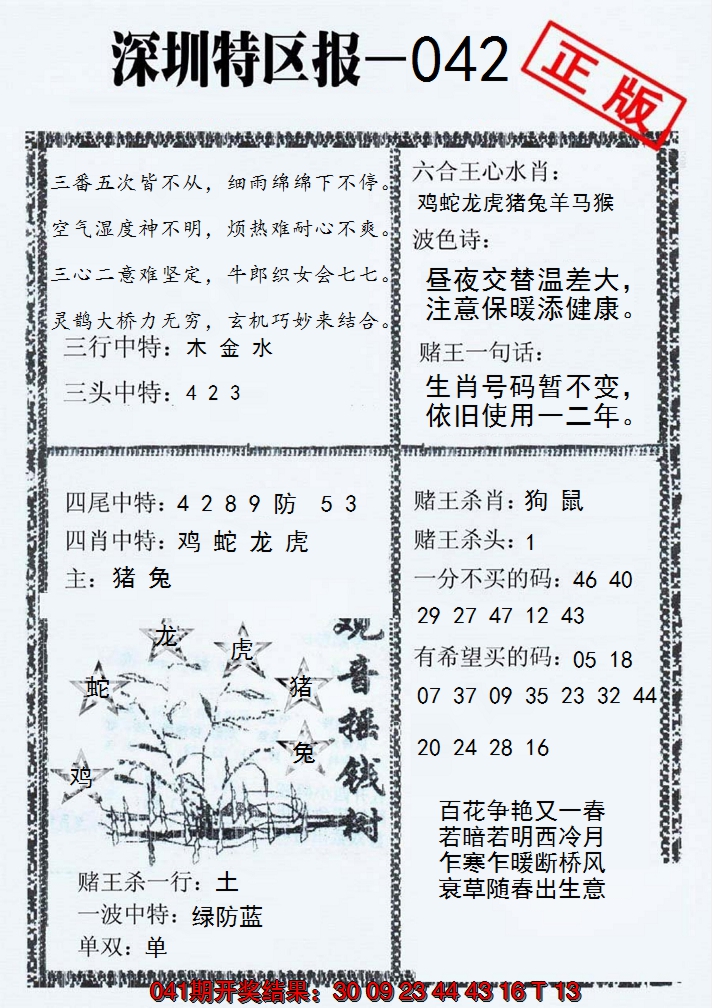 深圳特区报—042
正版
三番五次皆不从，细雨绵绵下不停。
空气湿度神不明，烦热难耐心不爽。
三心二意难坚定，牛郎织女会七七。
灵鹊大桥力无穷，玄机巧妙来结合。
三行中特：木 金 水
三头中特：4 2 3
六合王心水肖：
鸡蛇龙虎猪兔羊马猴
波色诗：
昼夜交替温差大，
注意保暖添健康。
赌王一句话：
生肖号码暂不变，
依旧使用一二年。
四尾中特：4 2 8 9 防 5 3
四肖中特：鸡 蛇 龙 虎
主：猪 兔
龙
虎
蛇
猪
兔
鸡
观音摇钱树
赌王杀一行：土
一波中特：绿防蓝
单双：单
赌王杀肖：狗 鼠
赌王杀头：1
一分不买的码：46 40
29 27 47 12 43
有希望买的码：05 18
07 37 09 35 23 32 44
20 24 28 16
百花争艳又一春
若暗若明西冷月
乍寒乍暖断桥风
衰草随春出生意
041期开奖结果：30 09 23 44 43 16 T 13